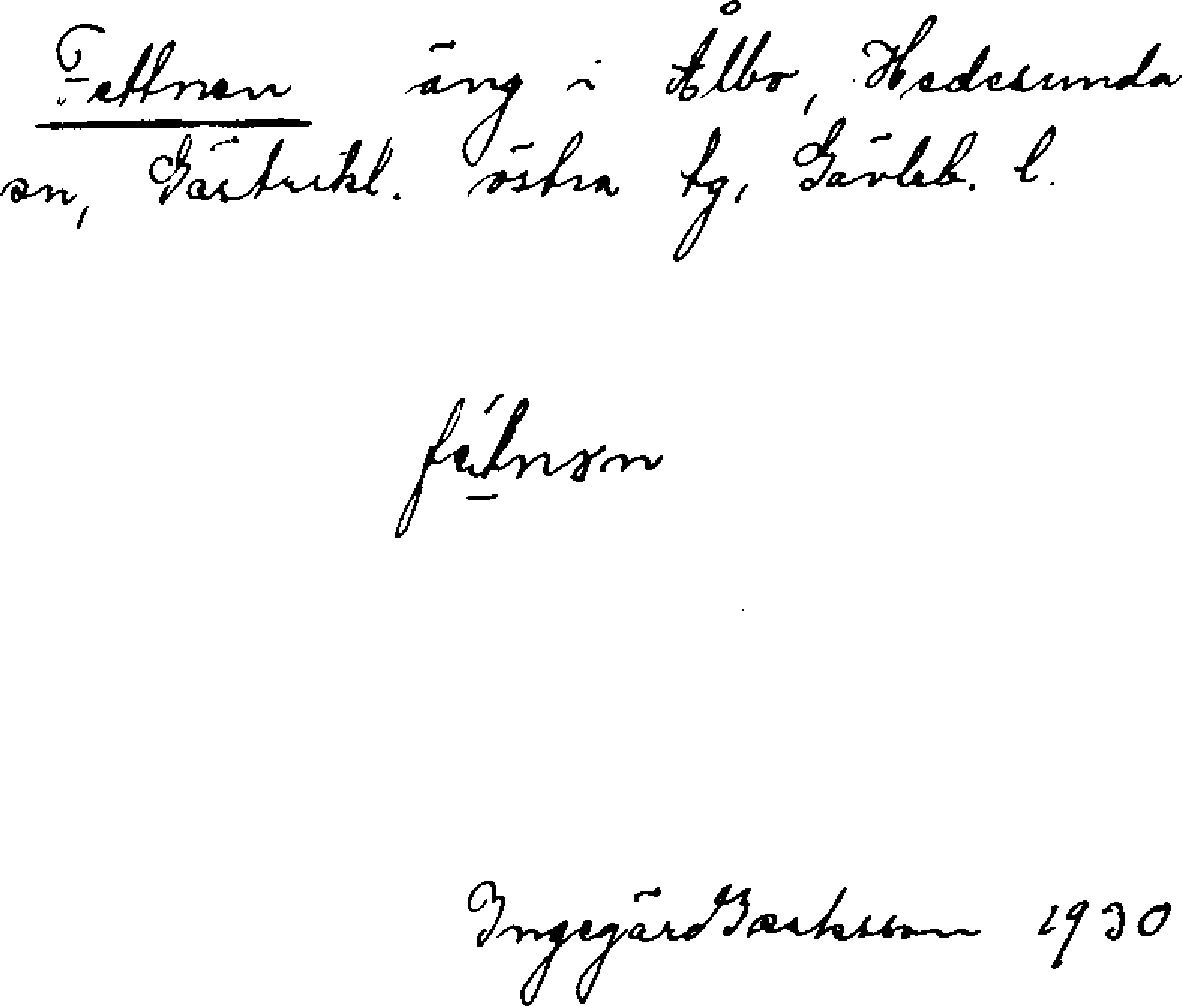 Fettnen äng i Ålbo, Hedesunda
sn, Gästrikl. östra tg, Gävleb. l.
Ingegärd 1930